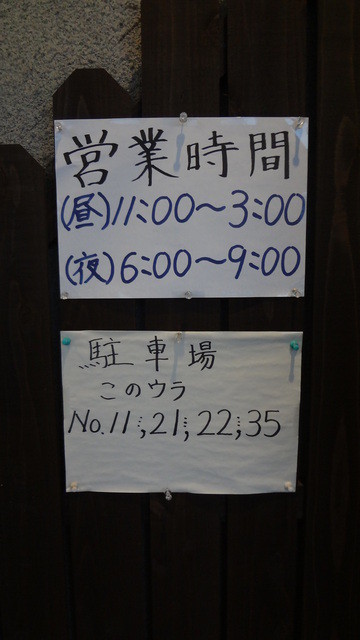 営業時間
(昼)11:00〜3:00
(夜)6:00〜9:00
駐車場
このウラ
No.11,21,22,35